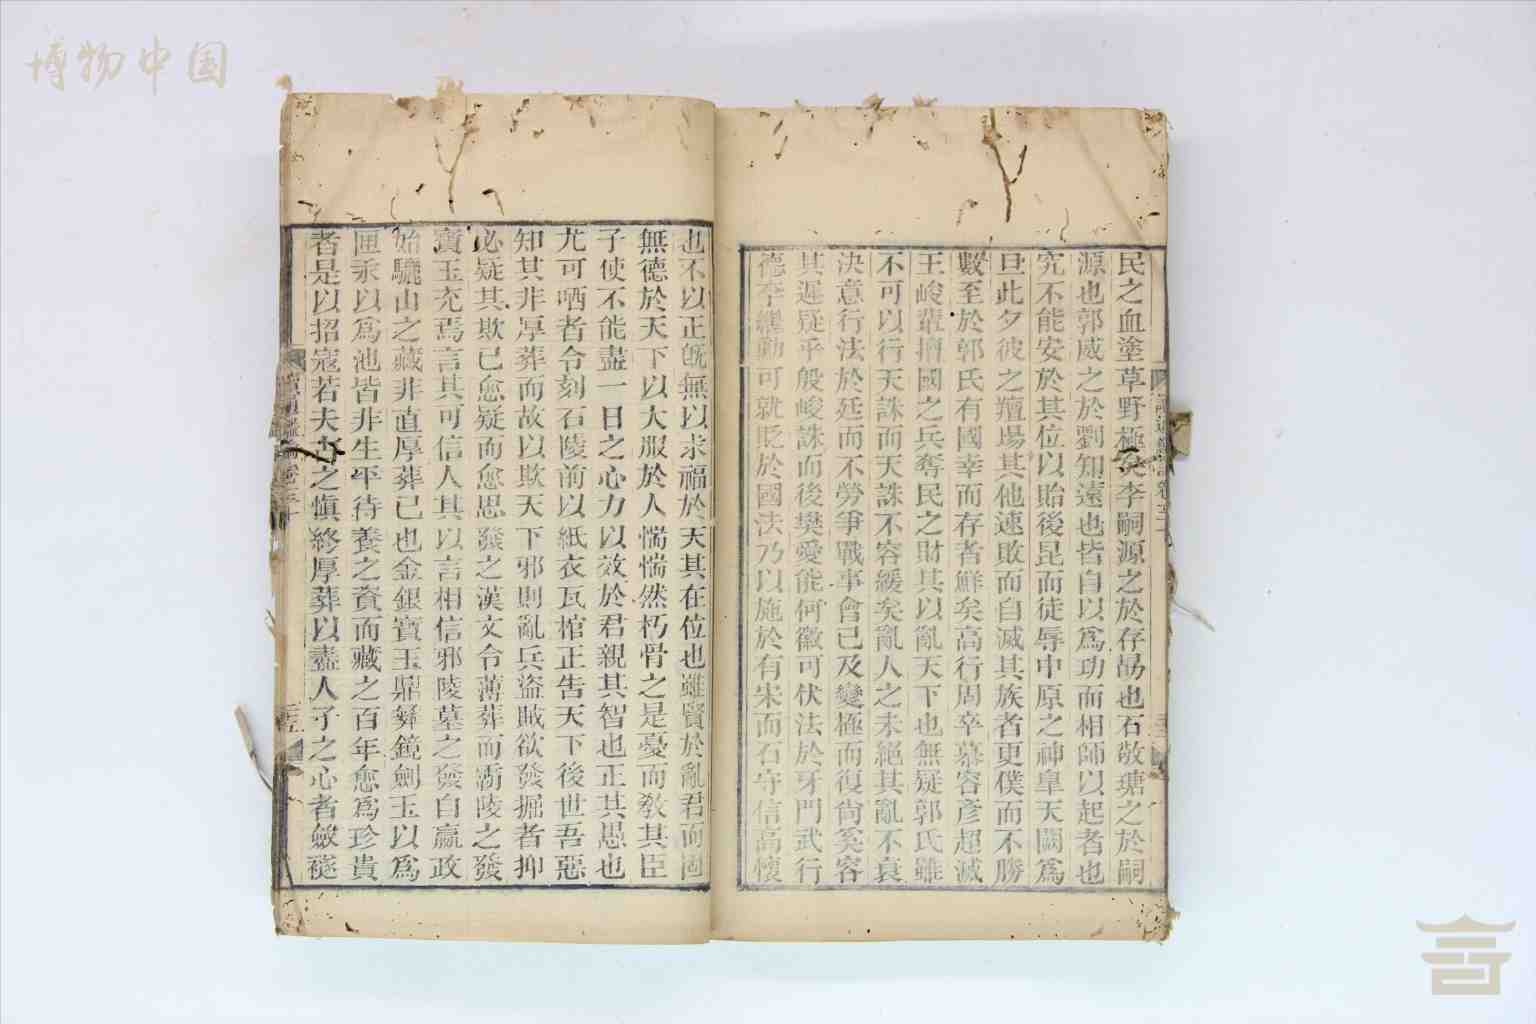 博物中国
民之血塗草野極矣李嗣源之於存勗也石敬瑭之於嗣
源也郭威之於劉知遠也皆自以爲功而相師以起者也
究不能安於其位以貽後昆而徒辱中原之神皐天闕爲
旦此夕彼之羶場其他速敗而自滅其族者更僕而不勝
數至於郭氏有國幸而存者鮮矣高行周卒慕容彥超滅
王峻輩擅國之兵奪民之財其以亂天下也無疑郭氏雖
不可以行天誅而天誅不容緩矣亂人之未絕其亂不衰
決意行法於廷而不勞爭戰事會已及變極而復尙奚容
其遲疑乎殷峻誅而後樊愛能何徽可伏法於牙門武行
德李繼勳可就貶於國法乃以施於有宋而石守信高懷
也不以正旣無以求福於天其在位也雖賢於亂君而固
無德於天下以大服於人惴惴然朽骨之是憂而敎其臣
子使不能盡一日之心力以效於君親其智也正其愚也
尤可哂者令刻石陵前以紙衣瓦棺正告天下後世吾惡
知其非厚葬而故以欺天下邪則亂兵盜賊欲發掘者抑
必疑其欺已愈疑而愈思發之漢文令薄葬而霸陵之發
寶玉充焉言其可信人其以言相信邪陵墓之發自嬴政
始驪山之藏非直厚葬已也金銀寶玉鼎彝鏡劍玉以爲
匣汞以爲池皆非生平待養之資而藏之百年愈爲珍貴
者是以招寇若夫古之愼終厚葬以盡人子之心者斂襚